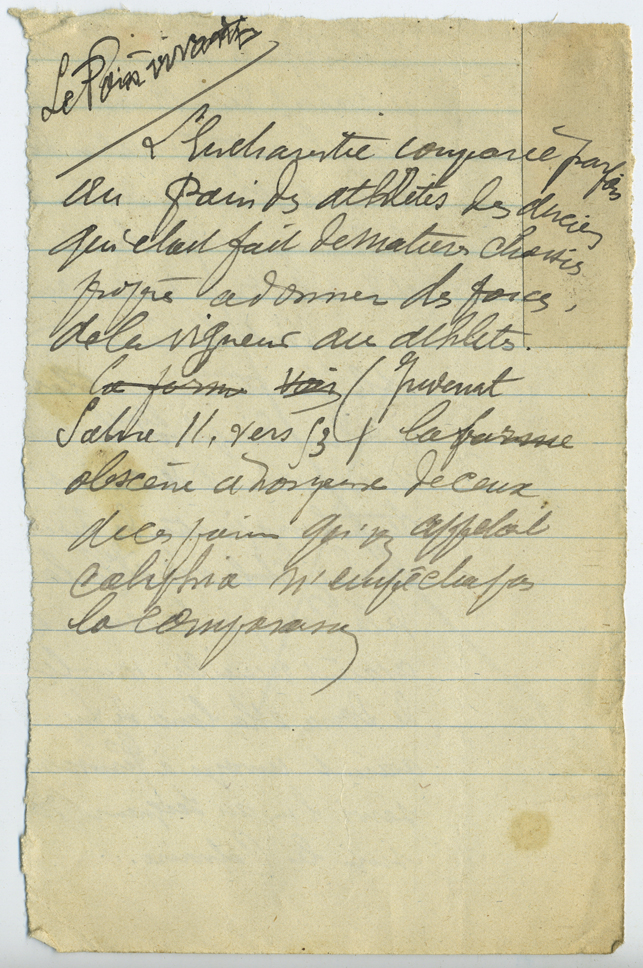 Le Pain vivant
L'Eucharistie comparée parfois
au Pain des athlètes des anciens
qui était fait de matières choisies
propre a donner des forces,
de la vigueur au athlètes.
la forme Vois ( Juvenal
Satire II. vers 53 ) la forme
obscène de ceux
de ces pains qu'on appelait
coliphia n'empêcha pas
la comparaison